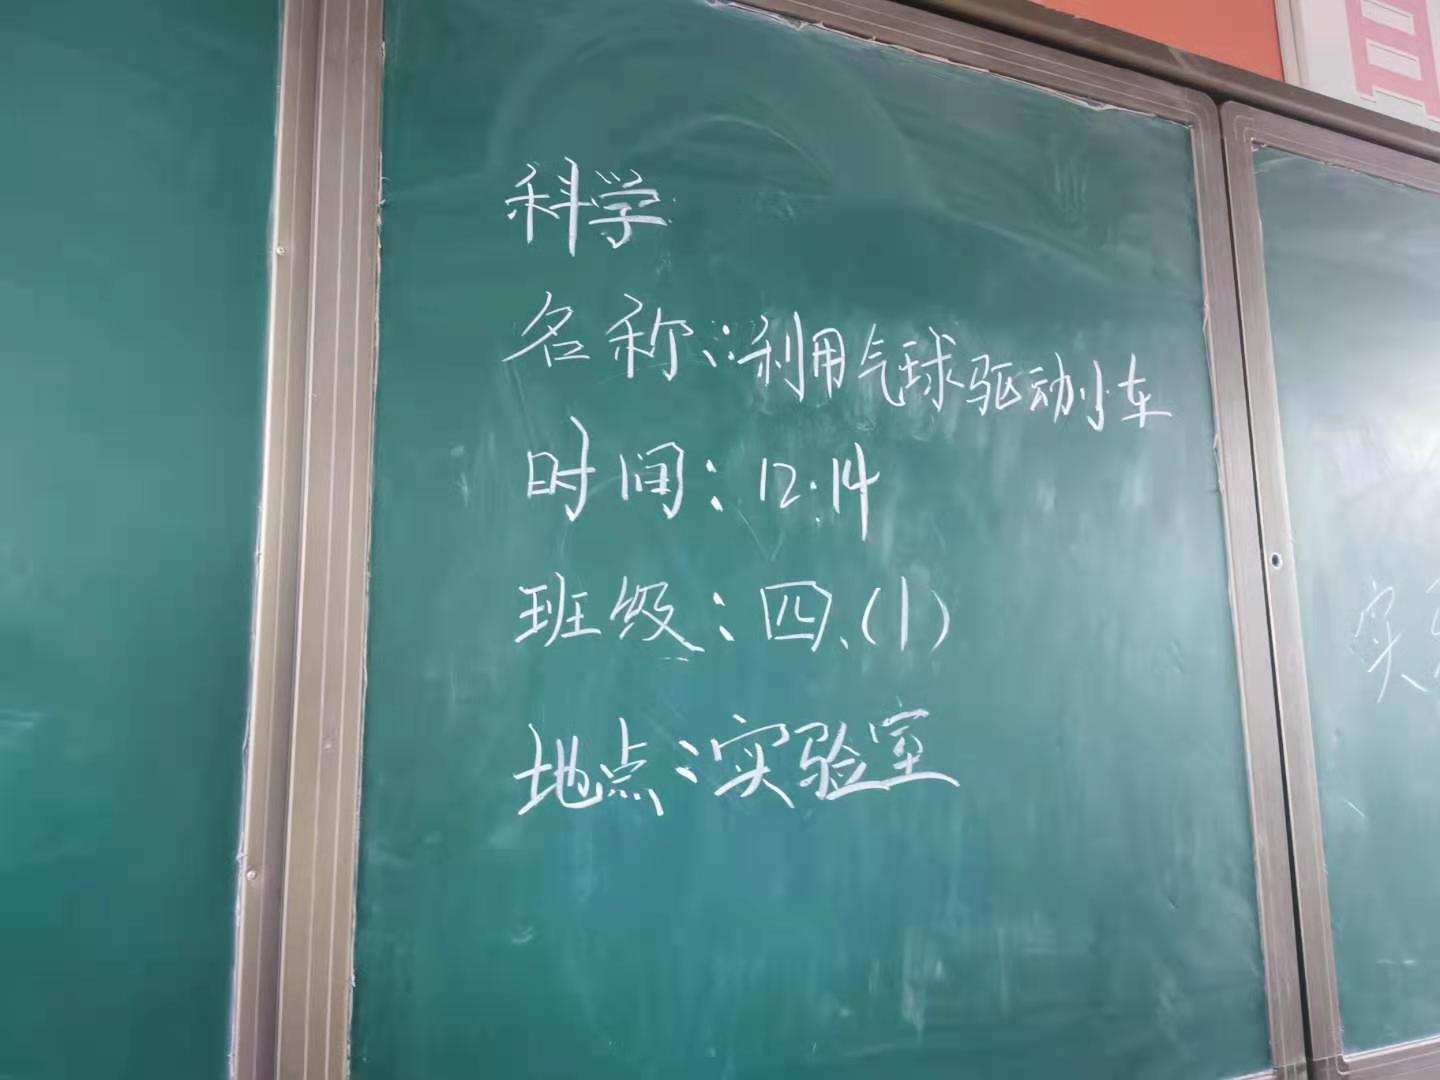 科学
名称：利用气球驱动小车
时间：12.14
班级：四、(1)
地点：实验室
实